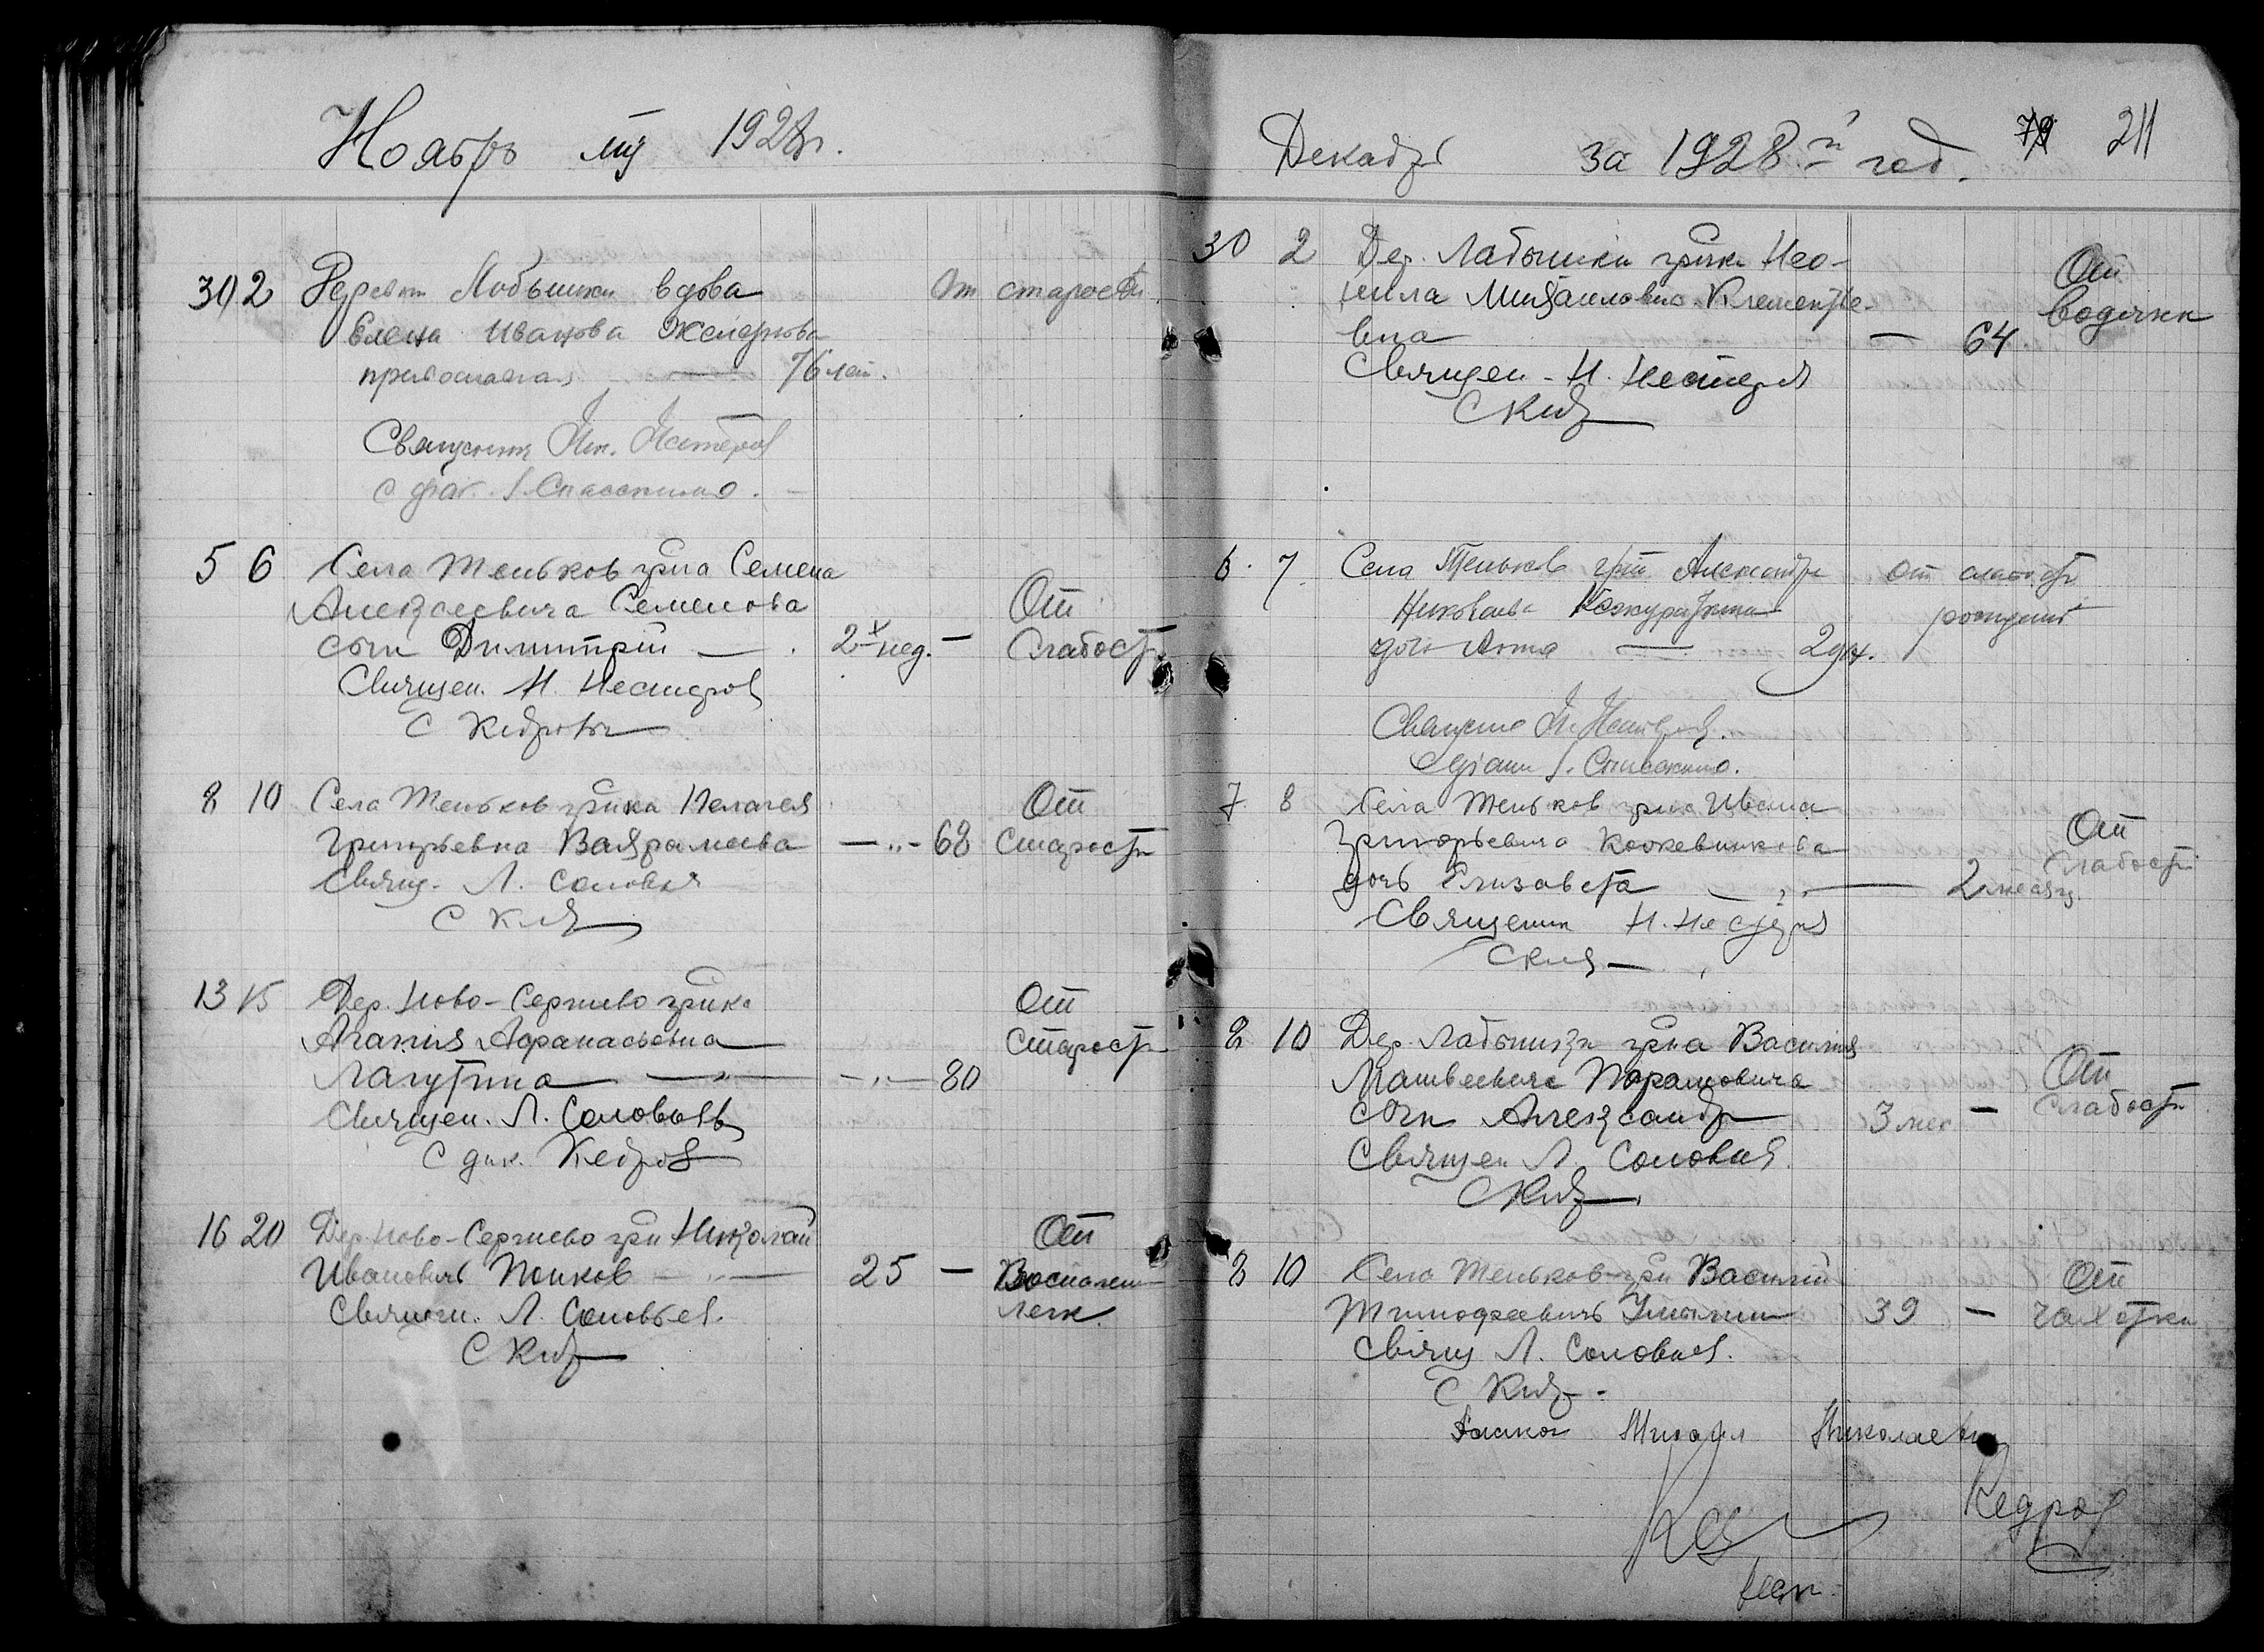 Ноябрь 1928 г.
30 2 Деревни Лобышки вдова От старости
Елена Иванова
православная — 76 лет.
Священник Ник. Нестеров
с диак. І. Спасским
5 6 Села Теньков гр-на Семена От
Алексеевича Семенова
сын Димитрий — 2х нед. — Слабост.
Священ. Н. Нестеров
С Кедровым
8 10 Села Теньков гр-нка Пелагея От
Григорьевна Варламова — „ - 68 Старости
Свящ. Л. Соловьев
С Кед
13 15 Дер. Ново-Сергиево гр-нка От
Агапия Афанасьевна Старости
Лагутина — „ — - „ - 80
Священ. Л. Соловьевъ
С диак. Кедров
16 20 Дер. Ново-Сергиево гр-н Николай От
Ивановичъ Попков — „ — 25 — Воспален
легк.
Священ. Л. Соловьев.
С Кед
Декабрь за 1928-й год. 79 211
30 2 Дер. Лабышки гр-нка Нео- От
нила Михайловна Клементье- водянки
вна — 64.
Священ. Н. Нестеров
С Кед
6. 7 Села Теньков гр-на Александра От слабости
Николаева рождения
дочь Анна — 2 дн.
Священ. Н. Нестеров.
С діак. І. Спасским.
7 8 Села Теньков гр-на Ивана От
Григорьевича Кожевникова Слабости
дочь Елизавета — 2 месяц.
Священник Н. Нестеров
С Кед
8 10 Дер. Лабышки гр-на Василия От
Матвеевича слабости
сын Александр 3 мес —
Священ Л. Соловьев.
С Кед
8 10 Села Теньков гр-н Василий От
Тимофеевичъ 39 — чахотки
Свящ Л. Соловьев.
С Кед.
Диакон Михаил Николаевич
Кедров